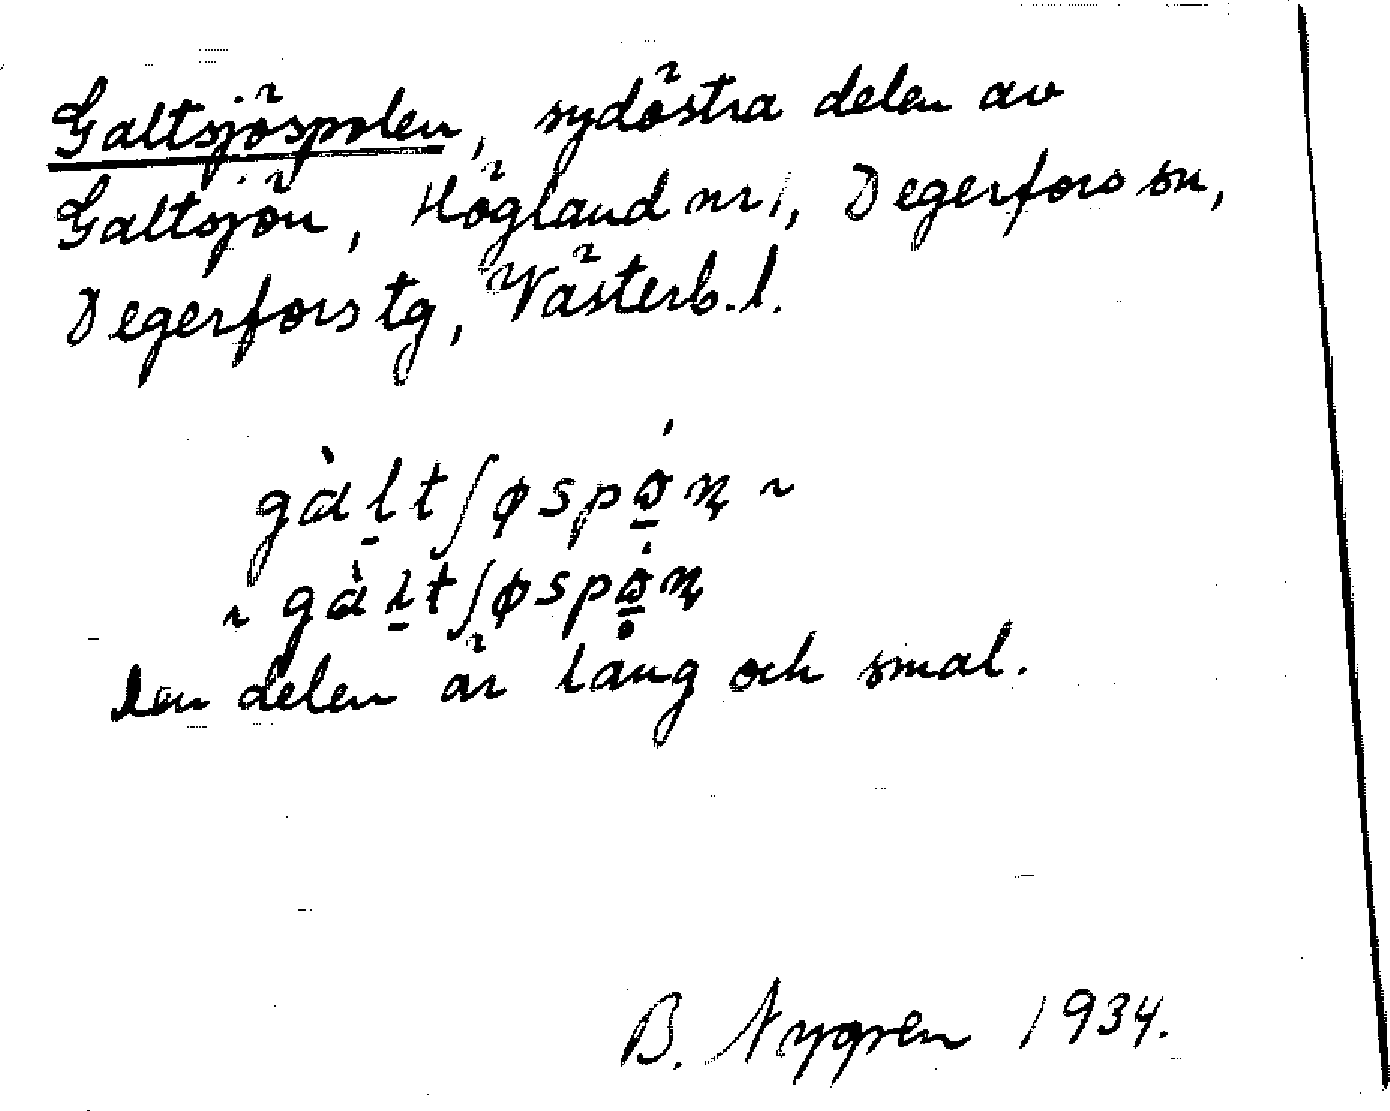 Galtsjöspolen, sydöstra delen av
Galtsjön, Högland nr 1, Degerfors sn,
Degerfors tg, Västerb. l.
gàl̠tʃøspo̠̍ɳ ~
~ gàl̠tʃøspọ̠̍ɳ
Den delen är lång och smal.
B. Nygren 1934.